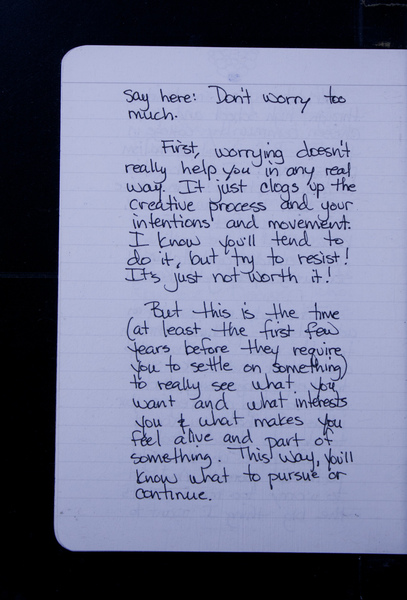 say here: Don't worry too
much.
First, worrying doesn't
really help you in any real
way. It just clogs up the
creative process and your
intentions and movement.
I know you'll tend to
do it, but try to resist!
It's just not worth it!
But this is the time
(at least the first few
years before they require
you to settle on something)
to really see what you
want and what interests
you & what makes you
feel alive and part of
something. This way, you'll
know what to pursue or
continue.